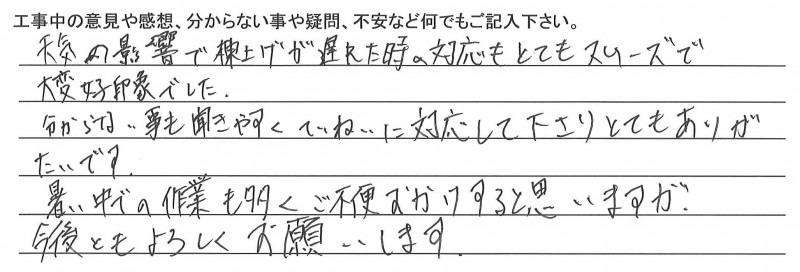 工事中の意見や感想、分からない事や疑問、不安など何でもご記入下さい。
天気の影響で棟上げが遅れた時の対応もとてもスムーズで
大変好印象でした.
分からない事も聞きやすくていねいに対応して下さりとてもありが
たいです.
暑い中での作業も多くご不便おかけすると思いますが.
今後ともよろしくお願いします.